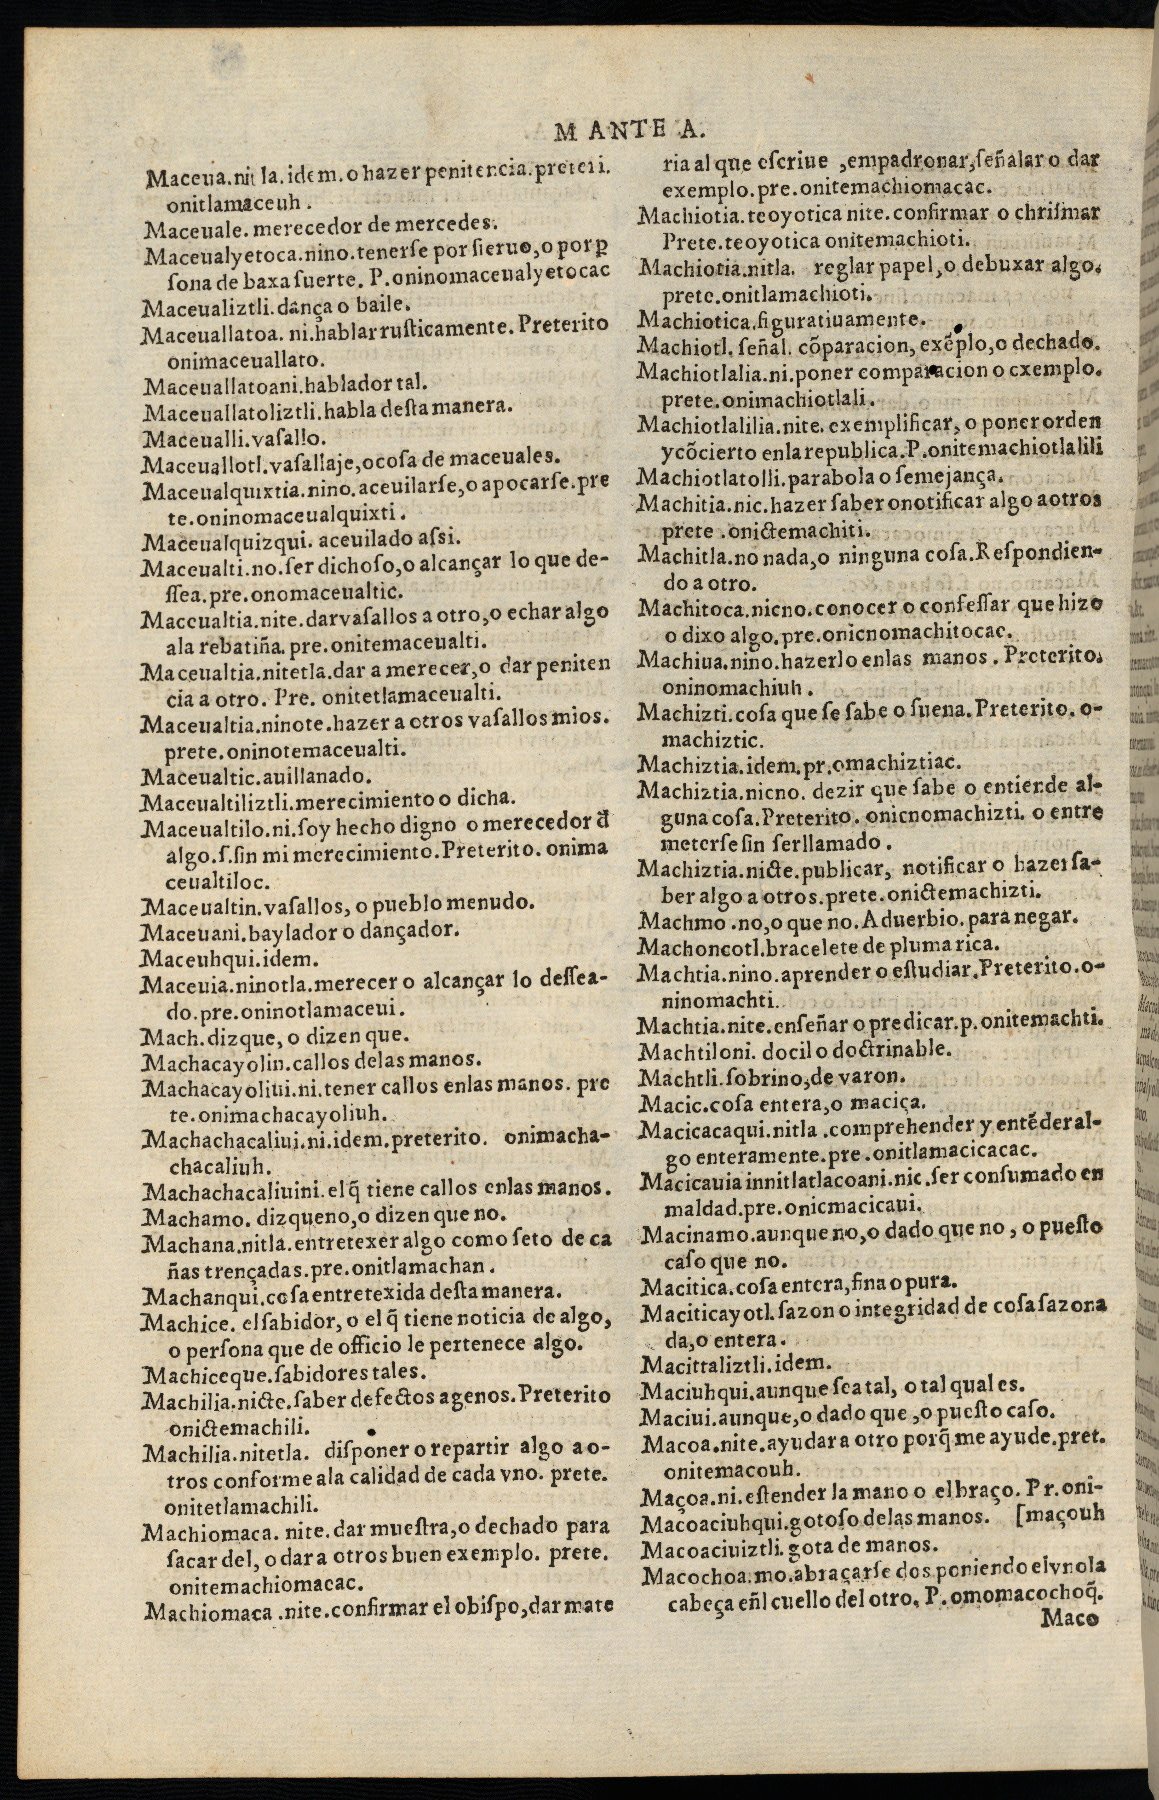 M ANTE A.
Maceua.nitla.idem.o hazer penitencia.preteri.
onitlamaceuh.
Maceuale. merecedor de mercedes.
Maceualyetoca.nino.tenerſe por ſieruo,o por ꝑ
ſona de baxa ſuerte. P.oninomaceualyetocac
Maceualiztli.dança o baile.
Maceuallatoa. ni.hablar ruſticamente. Preterito
onimaceuallato.
Maceuallatoani.hablador tal.
Maceuallatoliztli.habla deſta manera.
Maceualli.vaſallo.
Maceuallotl.vaſallaje,o coſa de maceuales.
Maceualquixtia.nino.aceuilarſe,o apocarſe.pre
te.oninomaceualquixti.
Maceualquizqui. aceuilado aſsi.
Maceualti.no.ſer dichoſo,o alcançar lo que de-
ſſea.pre.onomaceualtic.
Maceualtia.nite.darvaſallos a otro,o echar algo
ala rebatiña.pre.onitemaceualti.
Maceualtia.nitetla.dar a merecer,o dar peniten
cia a otro. Pre. onitetlamaceualti.
Maceualtia.ninote.hazer a otros vaſallos mios.
prete.oninotemaceualti.
Maceualtic.auillanado.
Maceualtiliztli.merecimiento o dicha.
Maceualtilo.ni.ſoy hecho digno o merecedor đ
algo.ſ.ſin mi merecimiento.Preterito. onima
ceualtiloc.
Maceualtin.vaſallos, o pueblo menudo.
Maceuani.baylador o dançador.
Maceuhqui.idem.
Maceuia.ninotla.merecer o alcançar lo deſſea-
do.pre.oninotlamaceui.
Mach.dizque, o dizen que.
Machacayolin.callos delas manos.
Machacayoliui.ni.tener callos enlas manos. pre
te.onimachacayoliuh.
Machachacaliui.ni.idem.preterito. onimacha-
chacaliuh.
Machachacaliuini.el q̃ tiene callos enlas manos.
Machamo. dizqueno,o dizen que no.
Machana.nitla.entretexer algo como ſeto de ca
ñas trençadas.pre.onitlamachan.
Machanqui.coſa entretexida deſta manera.
Machice. el ſabidor, o el q̃ tiene noticia de algo,
o perſona que de officio le pertenece algo.
Machiceque.ſabidores tales.
Machilia.nicte.ſaber defectos agenos.Preterito
onictemachili.
Machilia.nitetla. diſponer o repartir algo a o-
tros conforme ala calidad de cada vno. prete.
onitetlamachili.
Machiomaca. nite.dar mueſtra,o dechado para
ſacar del, o dar a otros buen exemplo. prete.
onitemachiomacac.
Machiomaca .nite.confirmar el obiſpo,dar mate
ria al que eſcriue ,empadronar,ſeñalar o dar
exemplo.pre.onitemachiomacac.
Machiotia.teoyotica nite.confirmar o chriſmar
Prete.teoyotica onitemachioti.
Machiotia.nitla. reglar papel,o debuxar algo.
prete.onitlamachioti.
Machiotica.figuratiuamente.
Machiotl. ſeñal. cõparacion, exẽplo,o dechado.
Machiotlalia.ni.poner comparacion o exemplo.
prete.onimachiotlali.
Machiotlalilia.nite. exemplificar, o poner orden
y cõcierto enla republica.P.onitemachiotlalili
Machiotlatolli.parabola o ſemejança.
Machitia.nic.hazer ſaber onotificar algo aotros
prete .onictemachiti.
Machitla.no nada,o ninguna coſa.Reſpondien-
do a otro.
Machitoca.nicno.conocer o confeſſar que hizo
o dixo algo.pre.onicnomachitocac.
Machiua.nino.hazerlo enlas manos . Preterito.
oninomachiuh .
Machizti.coſa que ſe ſabe o ſuena.Preterito. o-
machiztic.
Machiztia.idem.pr.omachiztiac.
Machiztia.nicno. dezir que ſabe o entiende al-
guna coſa.Preterito. onicnomachizti. o entre
meterſe ſin ſerllamado .
Machiztia.nicte.publicar, notificar o hazer ſa-
ber algo a otros.prete.onictemachizti.
Machmo .no,o que no. Aduerbio.para negar.
Machoncotl.bracelete de pluma rica.
Machtia.nino.aprender o eſtudiar.Preterito.o-
ninomachti.
Machtia.nite.enſeñar o predicar.p.onitemachti.
Machtiloni. docil o doctrinable.
Machtli.ſobrino,de varon.
Macic.coſa entera,o maciça.
Macicacaqui.nitla .comprehender y entẽder al-
go enteramente.pre .onitlamacicacac.
Macicauia innitlatlacoani.nic.ſer conſumado en
maldad.pre.onicmacicaui.
Macinamo.aunque no,o dado que no , o pueſto
caſo que no.
Macitica.coſa entera,fina o pura.
Maciticayotl.ſazon o integridad de coſa ſazona
da,o entera.
Macittaliztli.idem.
Maciuhqui.aunque ſea tal, o tal qual es.
Maciui.aunque,o dado que ,o pueſto caſo.
Macoa.nite.ayudar a otro porq̃ me ayude.pret.
onitemacouh.
Maçoa.ni.eſtender la mano o el braço. Pr.oni-
Macoaciuhqui.gotoſo delas manos. [maçouh
Macoaciuiztli.gota de manos.
Macochoa.mo.abraçarſe dos poniendo elvno la
cabeça eñl cuello del otro. P.omomacochoq̃.
Maco